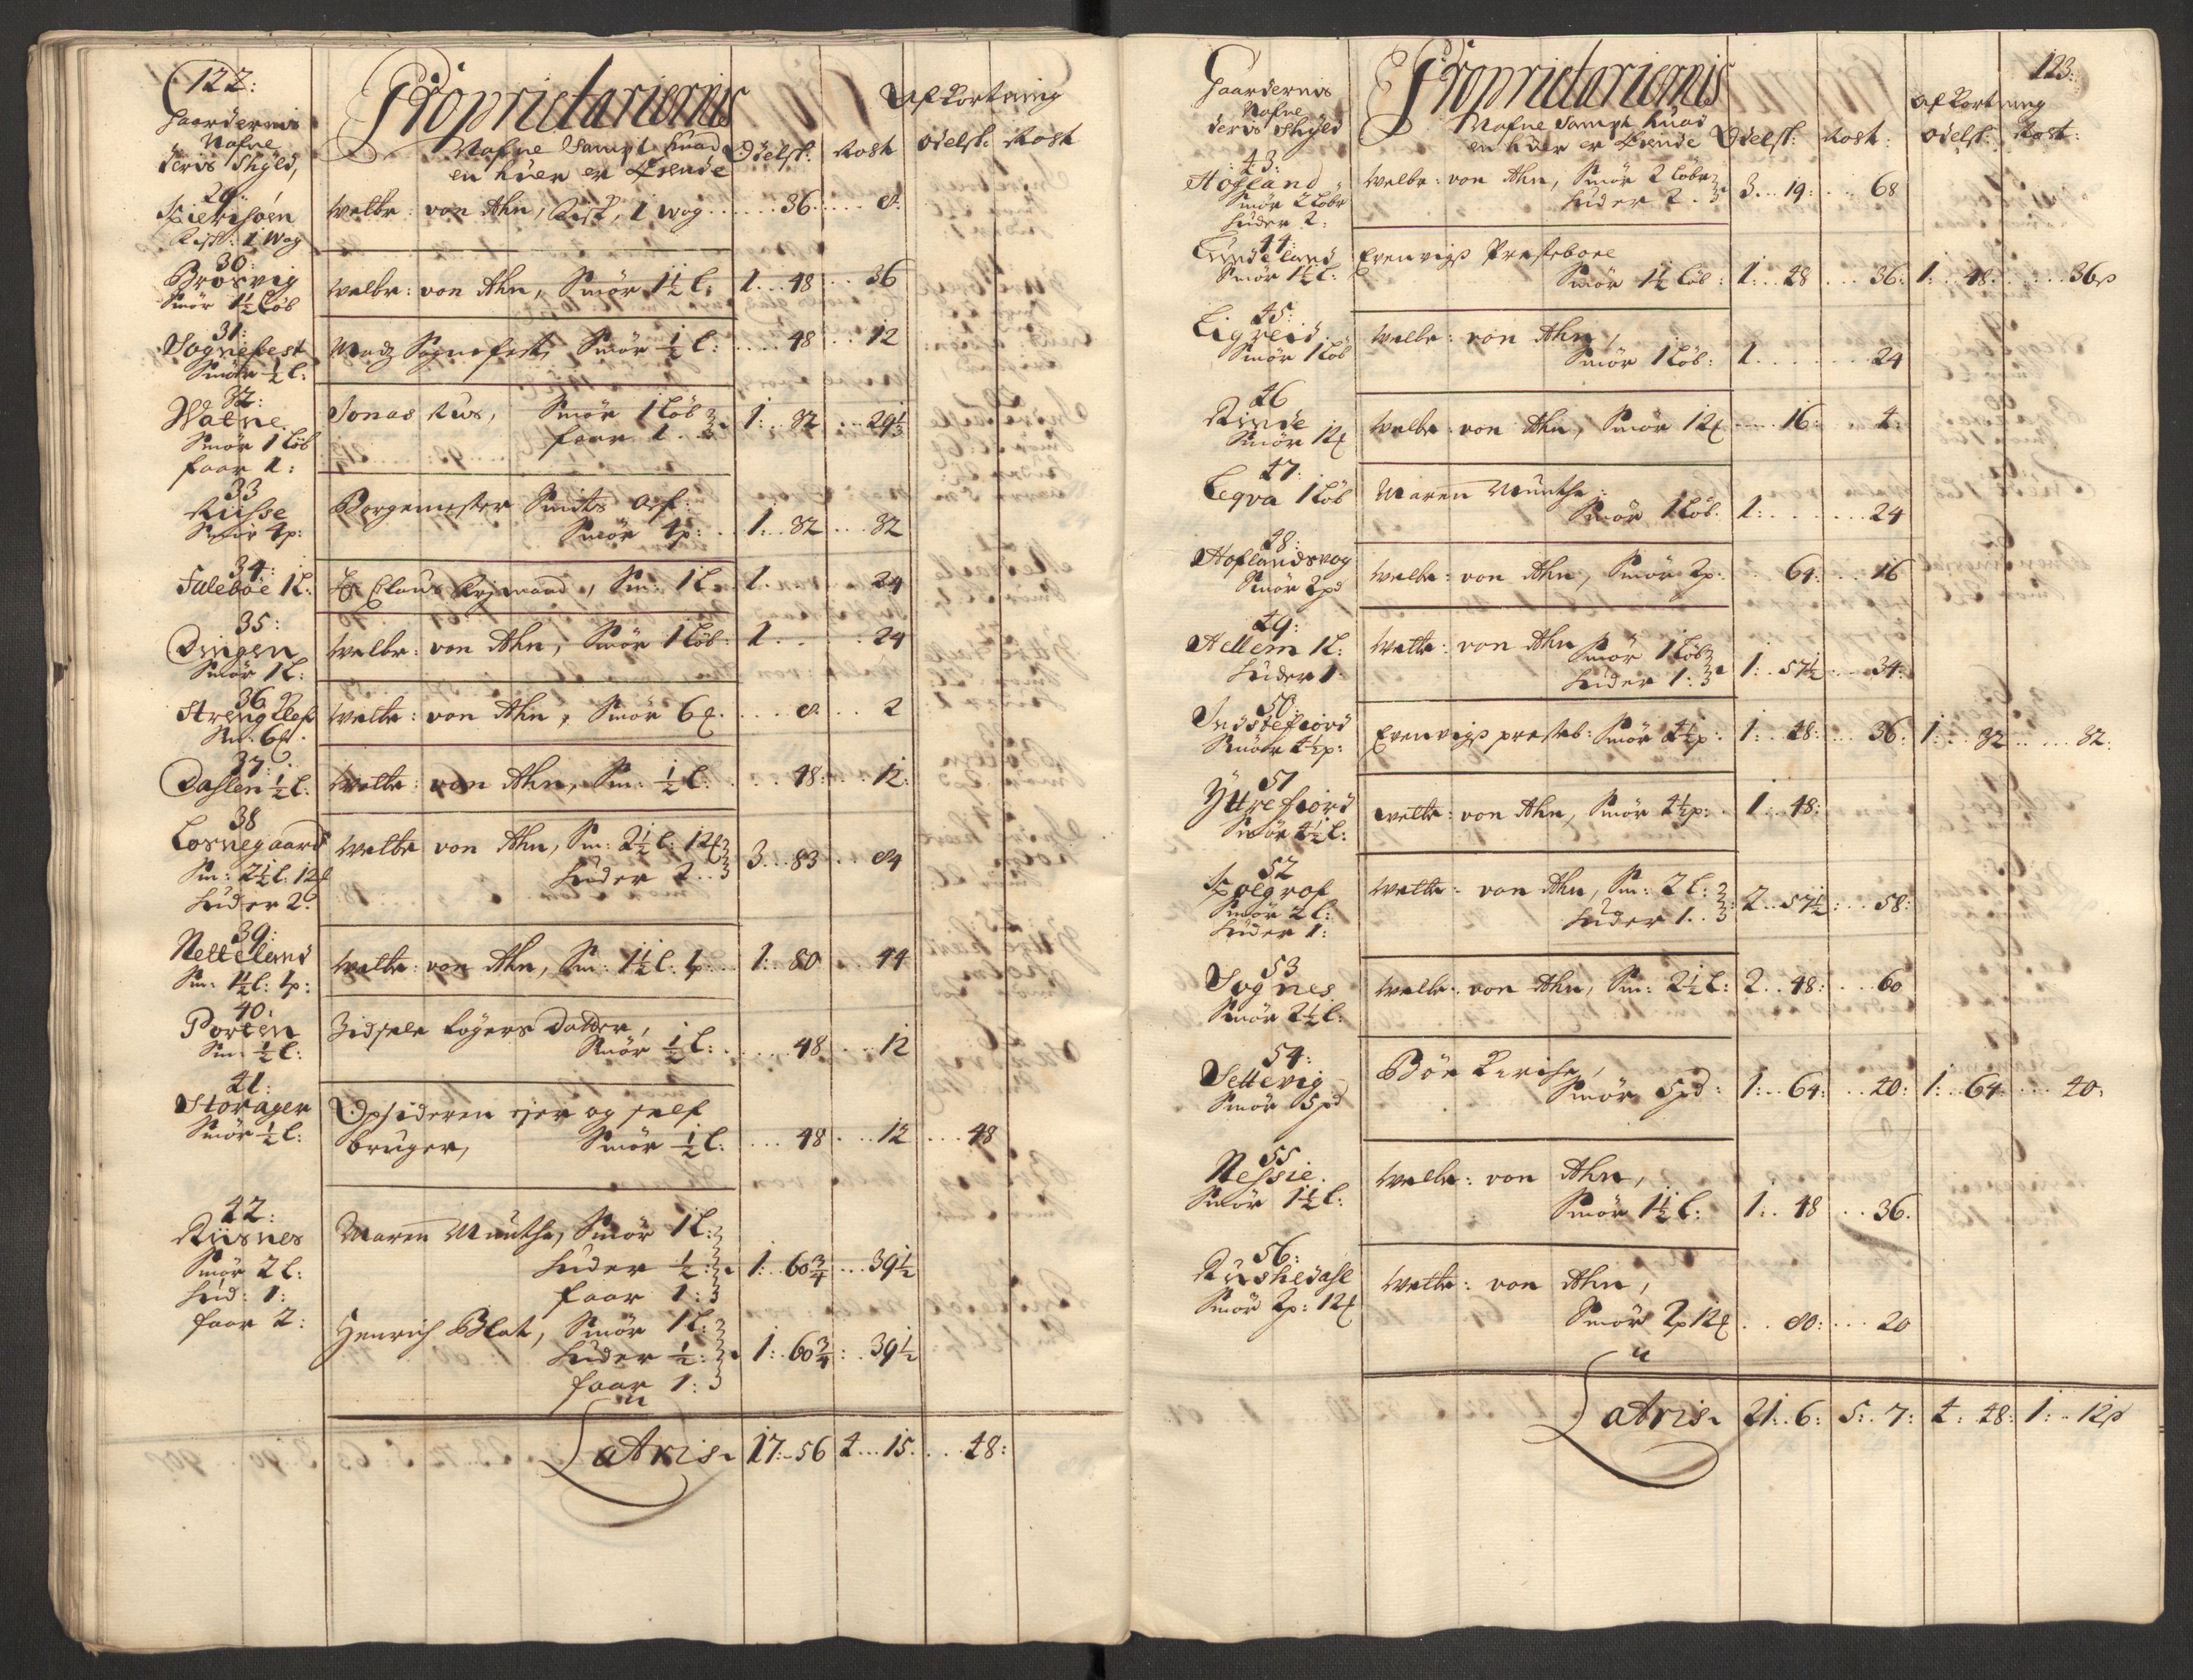 122:
Gaardernis
Nafne
deris Skyld,
Proprietariernis
Nafne Sampt huad
en huer er Eiende
Odelsk:
Rosk
Afkortning
odelsk:
Rosk
29:
Ristk: 1 Wog
welbr: von Ahn, Fisk, 1 Wog ...... 36 .... 8
30:
Brosvig
Smör 1½ Löb
welbr: von Ahn, Smör 1½ l: 1 .. 48 .. 36
31:
Sognefest
Smör ½ l:
Madz Sognefest, Smör ½ l: .... 48 .. 12
32:
Watne
Smör 1 Löb
faar 1:
Jonas Rus, Smör 1 Löb
faar 1 .. 1: .. 32 ... 29⅓
33
Risse
Smör 4p:
Borgemester Smits Arf:
Smör 4p: . 1: .. 32 ... 32
34:
Tuleböe 1l:
Hr Claus , Sm: 1l 1 .... 24
35:
Dingen
Smör 1l:
welbr: von Ahn, Smör 1 Löb: 1 .... 24
36
Sm: 6
welbr: von Ahn, Smör 6 .... 8 ... 2
37:
Daslen ½ l:
welbr: von Ahn, Sm: ½ l: ... 48: .. 12:
38
Losnegaard
Sm: 2½ l: 12
Huder 2
welbr von Ahn, Sm: 2½ l: 12
Huder 2 .. 3 .. 83 .. 84
39:
Netteland
Sm: 1½ l: 1p:
welbr: von Ahn, Sm: 1½ l: 1p ... 1: .. 80 .. 44
40:
Porten
Sm: ½ l:
Zidsele Datter,
Smör ½ l: .... 48 ... 12
41:
Storager
Smör ½ l:
Opsideren ejer og self
bruger, Smör ½ l: ... 48 ... 12 ... 48
42:
Riisnes
Smör 2 l:
Hud: 1:
faar 2:
Maren Munthe, Smör 1l:
Huder ½ : 1: .. 60¾ ... 39½
faar 1:
Henrich Blat, Smör 1l:
Huder ½: 1: .. 60¾: .. 39½
faar 1:
Latris 17: .. 56 4 ... 15. ... 48:
123:
Gaardernis
Nafne
deris Skyld
Proprietariernis
Nafne Sampt huad
en huer er Eiende
Odelsk:
Rosk:
Afkortning
odelsk:
Rosk:
43:
Hofland
Smör 2 Löber
Huder 2:
welbr: von Ahn, Smör 2 Löber
Huder 2 . 3 .. 19: ... 68
44:
Lundeland
Smör 1½ l:
Evenvigs Prestebole
Smör 1½ Löb: 1: .. 48 ... 36: 1: .. 48: .... 36
45:
Ligreid
Smör 1 Löb
welbr: von Ahn,
Smör 1 Löb: 1 ....... 24
46
Rinde
Smör 12
welbr: von Ahn, Smör 12 .... 16: .. 4:
47:
Leqva 1 Löb
Maren Munthe:
Smör 1 Löb. 1: ...... 24
48:
Hoflandsvog
Smör 2pd
welbr: von Ahn, Smör 2p: .. 64: ... 16
49:
Hellem 1l:
Huder 1:
welbr: von Ahn Smör 1 Löb
Huder 1: 1: .. 57½ ... 34:
50:
Indrefiord
Smör 4½p:
Evenvigs presteb: Smör 4½p: 1: .. 48: .. 36: 1: .. 32 .... 32:
51
Yttrefiord
Smör 4½ l:
welbr: von Ahn, Smör 4½p: . 1: .. 48:
52
Smör 2 l:
Huder 1:
welbr: von Ahn, Sm: 2 l:
Huder 1: . 2 .. 57½ ... 58:
53
Sognes
Smör 2½ l:
welbr: von Ahn, Sm: 2½ l: 2 .. 48: ... 60
54:
Settevig
Smör 5pd
Böe Kirche,
Smör 5pd: 1: .. 64: .. 40: 1: .. 64 ... 40:
55
Nessie.
Smör 1½ l:
welbr: von Ahn,
Smör 1½ l: 1: .. 48 .. 36.
56:
Riskedahl
Smör 2p: 12
welbr: von Ahn,
Smör 2p 12 .. 80: ... 20
Latris 21: .. 6: 5: .. 7: 4: .. 48: 1: .. 12